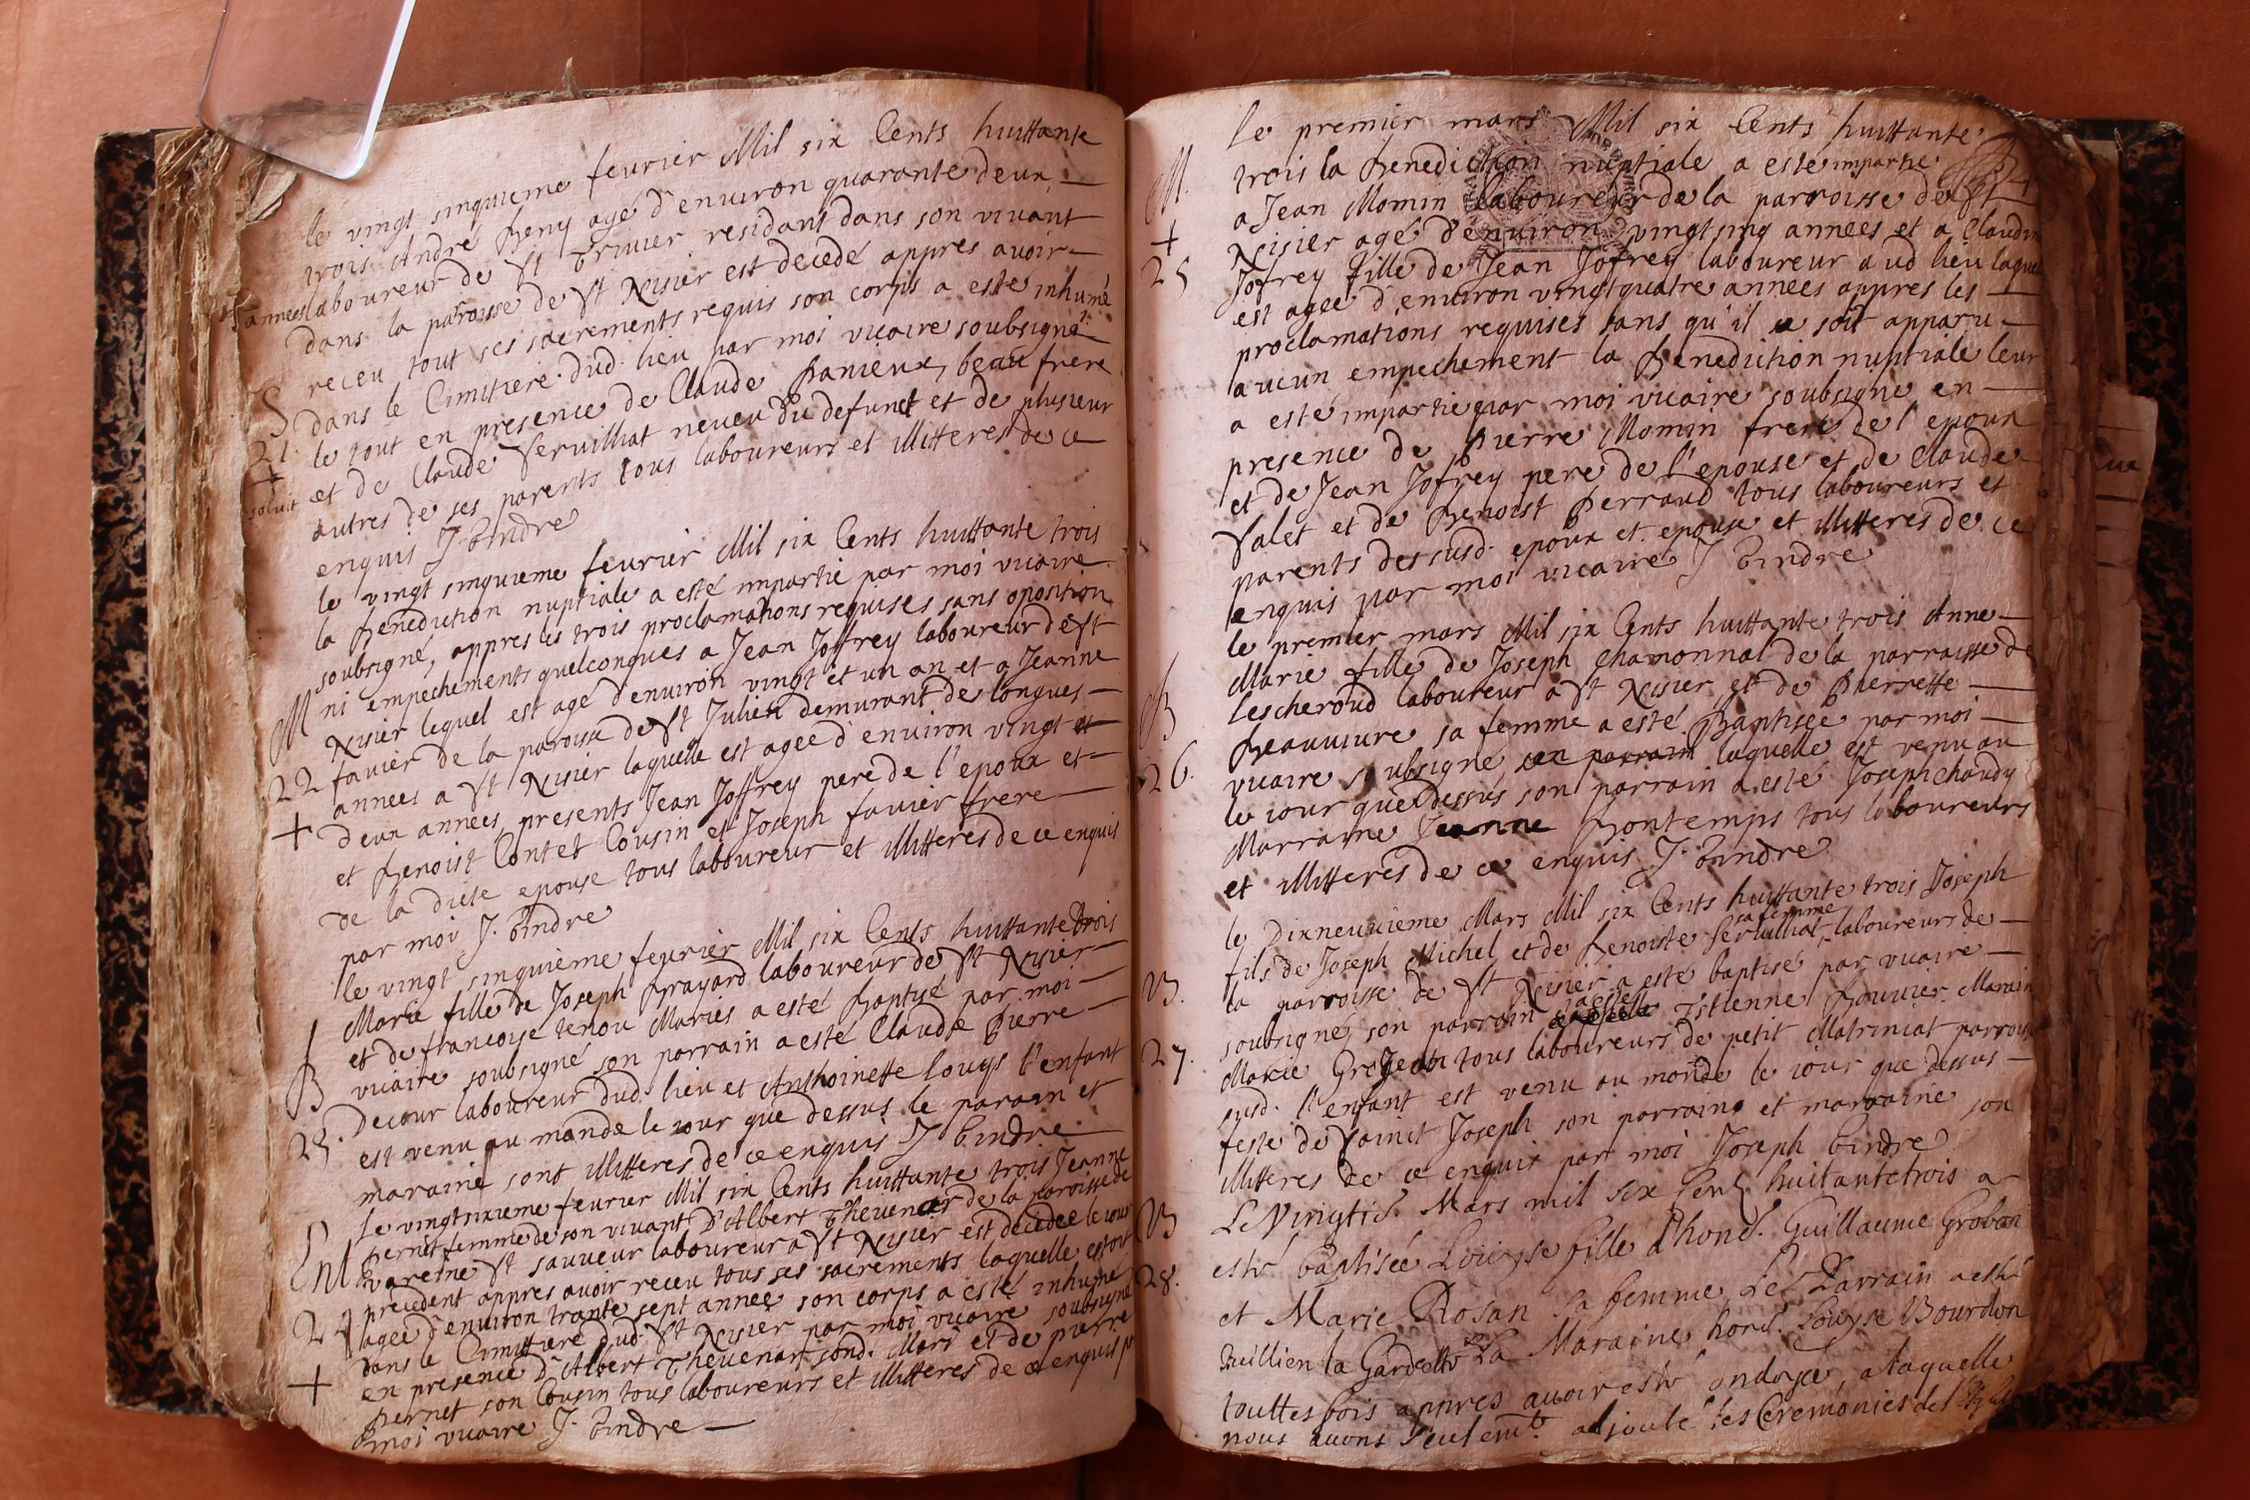 le vingt sinquieme feurier Mil six Cents huittante
trois André Beny agé d'enuiron quarante deux
annees laboureur de St Triuier residant dans son viuant
dans la paroisse de St Nisier est decedé appres auoir
receu tout ses sacrements requis son corps a esté inhumé
S dans le Cimitiere dud. lieu par moi vicaire soubsigné
21. le tout en presence de Claude Panieux, beau frere
+ et de Claude Seruilliat neueu du defunct et de plusieur
soluit autres de ses parents tous laboureurs et illitteres de ce
enquis J. Tindre
le vingt sinquieme feurier Mil six Cents huittante trois
la benediction nuptiale a esté impartie par moi vicaire
soubsigné, appres les trois proclamations requises sans oposition
M ni empechements quelconques a Jean Joffrey laboureur de St
Nisier lequel est agé d'enuiron vingt et un an et a Jeanne
22 fauier de la paroisse de St Julien demurant de longues
annees a St Nisier laquelle est agee d'enuiron vingt et
+ deux annees, presents Jean Joffrey pere de l'epoux et
et Benoist Contet Cousin et Joseph fauier frere
de la dicte epouse tous laboureur et illitteres de ce enquis
par moi J. Tindre
le vingt sinquieme feurier Mil six Cents huittante trois
Marie fille de Joseph Brayard laboureur de St Nisier
B et de francoise tenou Mariés a esté baptisé par moi
vicaire soubsigné son parrain a esté Claude Pierre
23. Decour laboureur dud. lieu et Anthoinette Louys l'enfant
est venu au monde le iour que dessus le parain et
maraine sont illitteres de ce enquis J. Tindre
Le vingtsixieme feurier Mil six Cents huittante trois Jeanne
pernet femme de son viuant d'Albert Theuenar de la paroisse de
Ent Varenne St Sauueur laboureur a St Nisier est decedee le iour
24 precedent appres auoir receu tous ses sacrements laquelle estoit
agee d'enuiron trante sept annees son corps a esté inhumé
dans le Cimittiere dud. St Nisier par moi vicaire soubsigné
+ en presence d'Albert Theuenar sond. Mari et de pierre
pernet son Cousin tous laboureurs et illitteres de ce enquis p
moi vicaire J. Tindre
le premier mars Mil six Cents huittante
M. trois la benediction nuptiale a esté impartie
a Jean Momin laboureur de la parroisse de St
+ Nisier agé d'enuiron vingt sinq annees et a Claudin
25 Joffrey fille de Jean Joffrey laboureur aud lieu laque
est agee d'enuiron vingt quatre annees appres les
proclamations requises sans qu'il se soit apparu
aucun empechement la benediction nuptiale leur
a esté impartie par moi vicaire soubsigné en
presence de pierre Momin frere de l'epoux
et de Jean Joffrey pere de l'epouse et de Claude
Valet et de Benoist Perraud tous laboureurs et
parents des susd. epoux et epouse et illitteres de ce
enquis par moi vicaire J. Tindre
le premier mars Mil six Cents huittante trois Anne
Marie fille de Joseph Chamonnal de la parraisse de
B Lescheroud laboureur a St Nisier et de Pierrette
Beauuiure sa femme a esté Baptisée par moi
26. vicaire soubsigné laquelle est venu au
le iour que dessus son parrain a esté Joseph chandy
Marraine Jeanne Bontemps tous laboureurs
et illitteres de ce enquis J. Tindre
le Dixneuuieme Mars Mil six Cents huittante trois Joseph
fils de Joseph Michel et de Benoiste Seruilliat sa femme laboureurs de
B. la parroisse de St Nisier a esté baptisé par vicaire
soubsigné, son parrain a esté Estienne Bouuier Marain
27. Marie Grosjean tous laboureurs de petit Matriniat parroiss
susd. l'enfant est venu au monde le iour que dessus
feste de Sainct Joseph son parraing et marraine son
illitteres de ce enquis par moi Joseph Tindre
B Le Vingtie. Mars mil six Cent huitantetrois a
esté baptisée Louyse fille d'hono. Guillaume Groban
28. et Marie Rosan sa femme Le Parrain a esté
Guillien la Gardette La Maraine hono. Louyse Bourdon
touttesfois appres auoir esté ondoyee, a laquelle
nous auons seulemt. adjouté les Ceremonies de l'Eglise